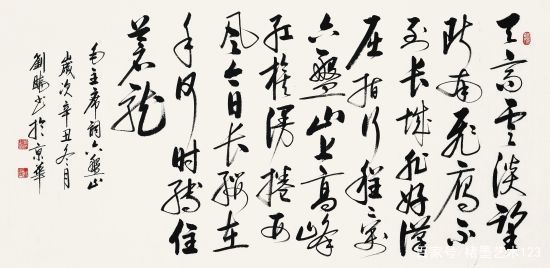 天高雲淡望
断南飛鴈不
到長城非好漢
屈指行程二萬
六盤山上高峰
紅旗漫捲西
風今日長纓在
手何時縛住
蒼龍
毛主席詞六盤山
歲次辛丑冬月
劉书於京華
百家号/楮墨艺术123